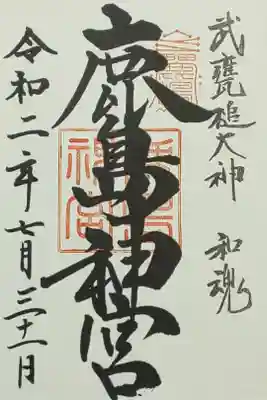 武甕槌大神 和魂
鹿島神宮
令和二年七月三十一日